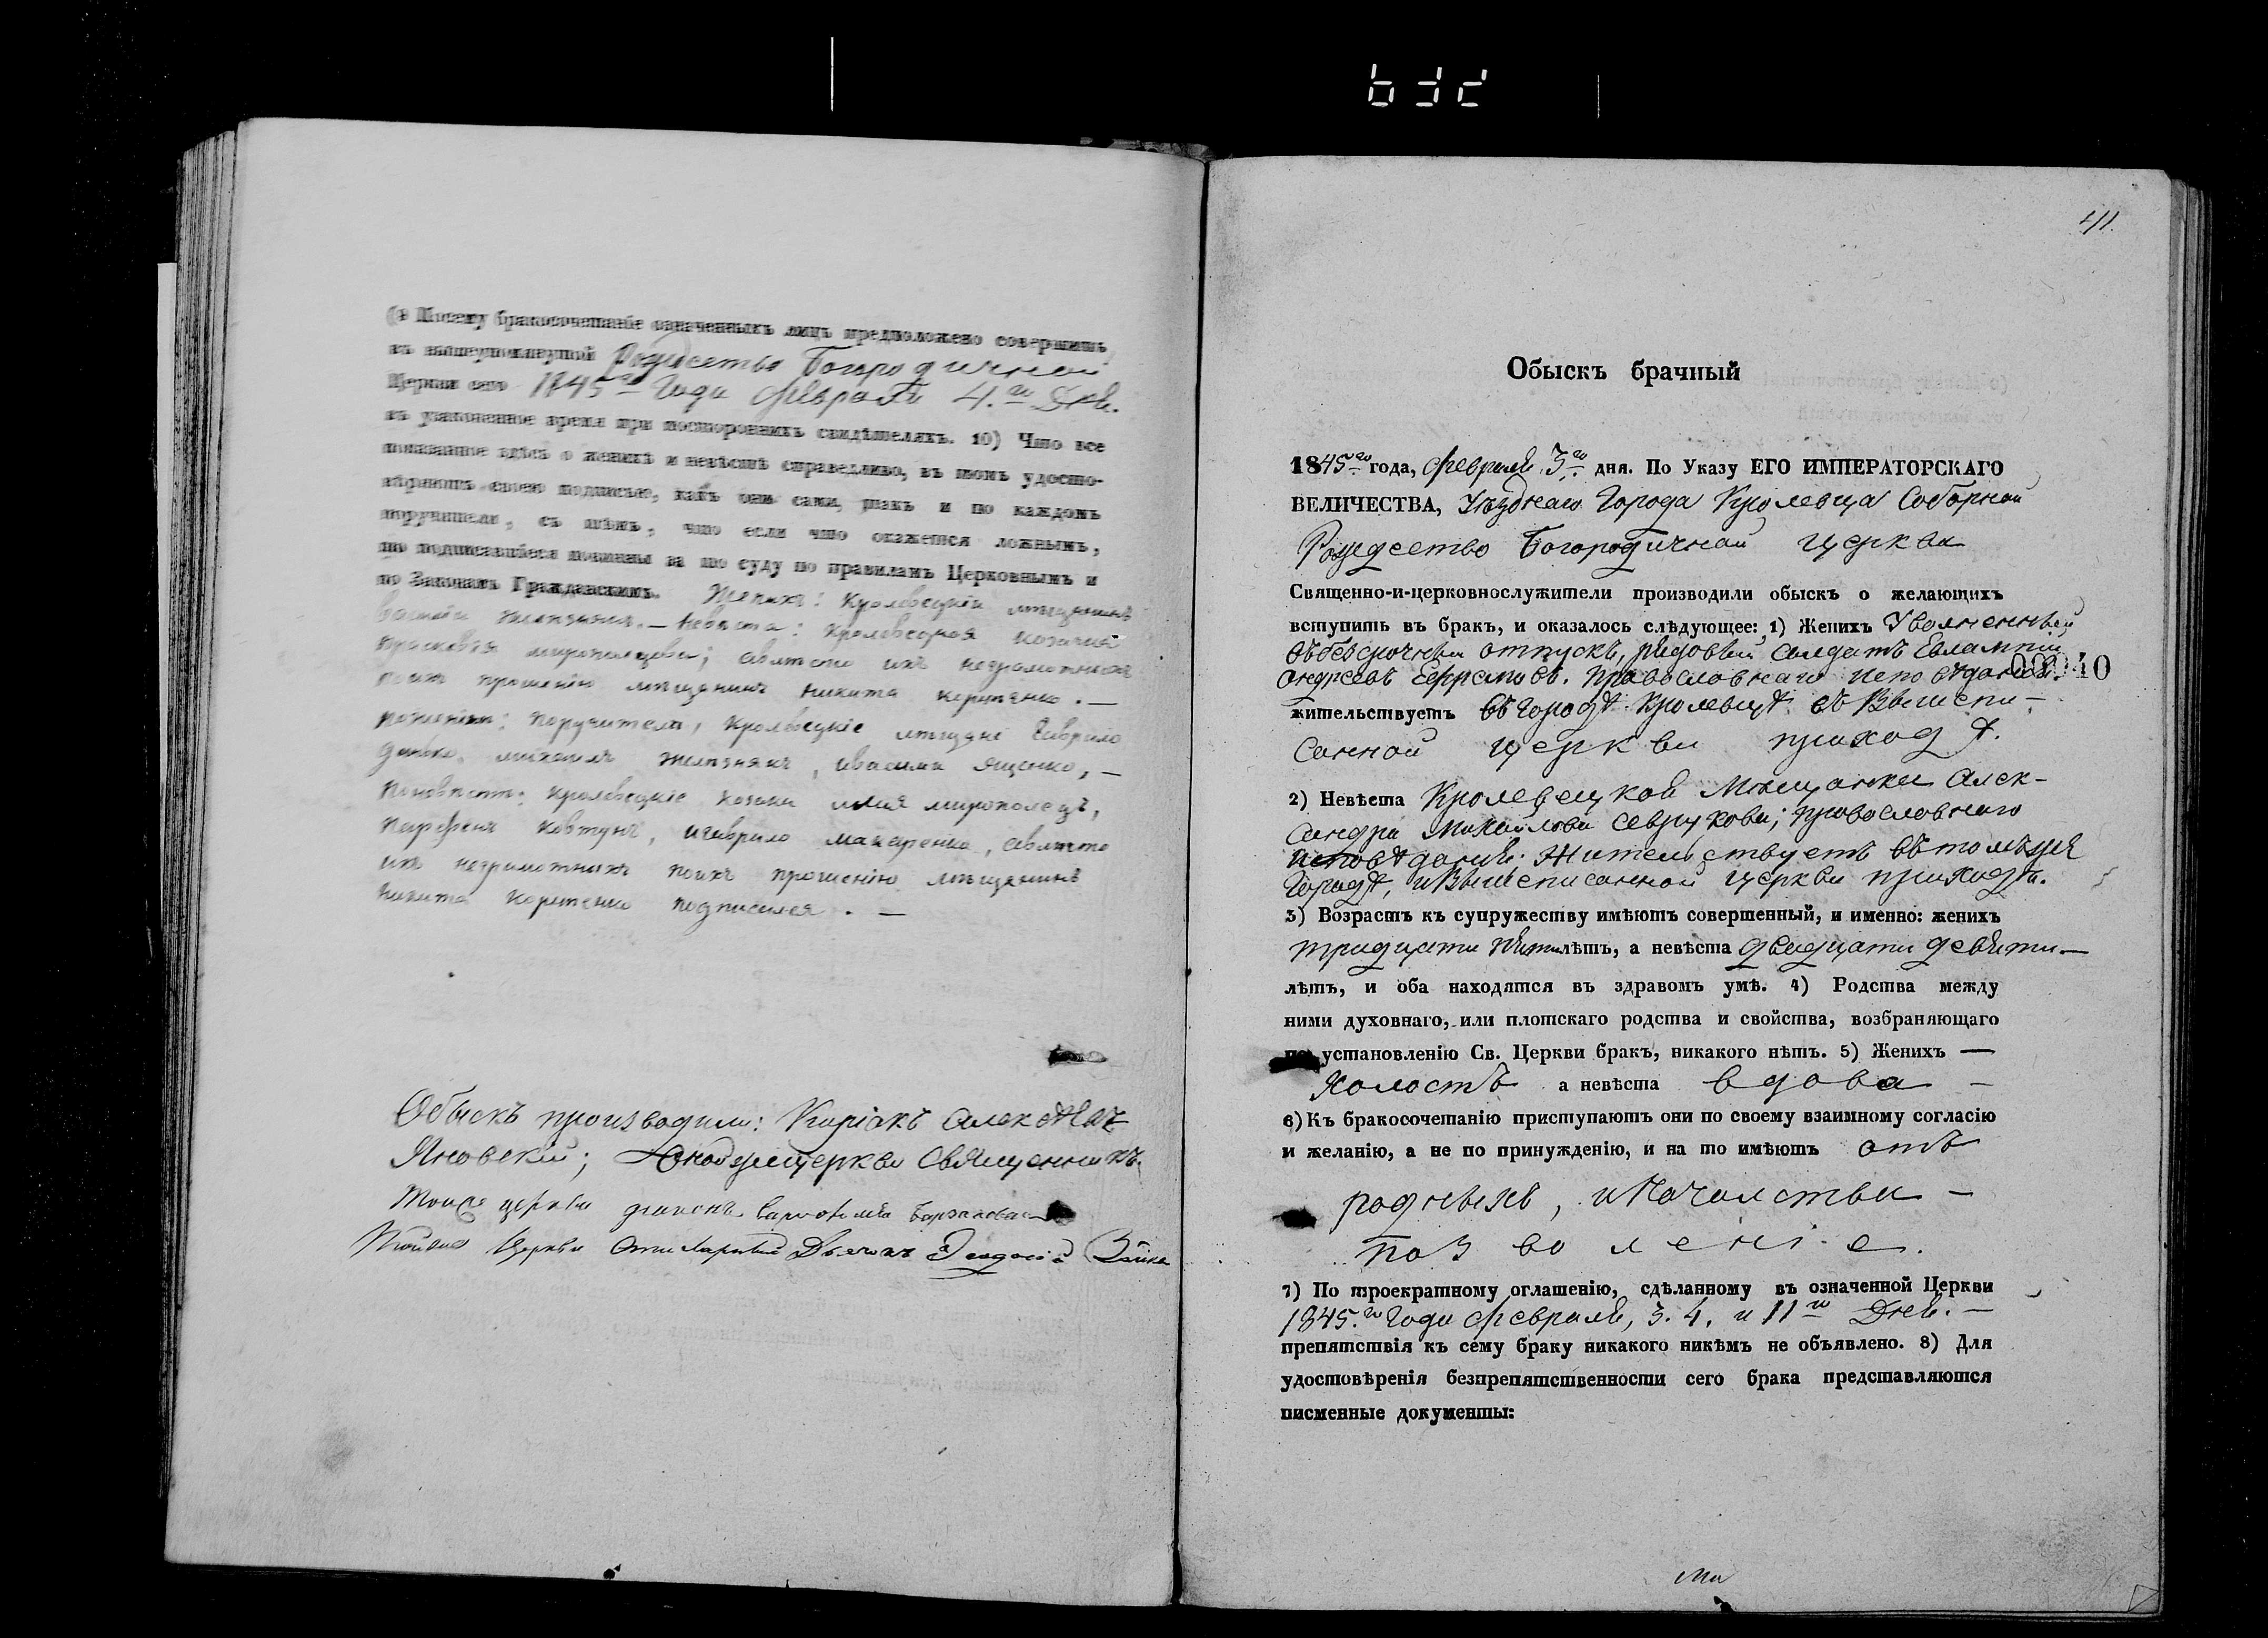 (9 Посему бракосочетаніе означенныхъ лицъ предположено совершить
въ вышеупомянутой Рождество Богородичной
Церкви сего 1845го Года Февраля 4.го Дня.
въ узаконенное время при постороннихъ свидѣтеляхъ. 10) Что все
показанное здѣсь о женихѣ и невѣстѣ справедливо, въ томъ удосто-
вѣряютъ своею подписью, какъ они сами, такъ и по каждомъ
поручители, съ тѣмъ, что если что окажется ложнымъ,
то подписавшіеся повинны за то суду по правиламъ Церковнымъ и
по Законамъ Гражданскимъ. Женихъ: Кролевецкій мѣщанинъ
Василій Железнякъ. — Невѣста: Кролевецкая козачка
Прасковія мирополцова; авместо ихъ неграмотныхъ
поихъ прошенію мѣщанинъ Никита Коротенко. —
пожениху: поручители, Кролевецкіе мѣщане Гаврило
михаилъ Железнякъ, ивасили Ященко, —
Поневѣсте: Кролевецкіе козаки илия мирополецъ,
Парфенъ Ковтунъ, игаврило макаренко, авместо
ихъ неграмотныхъ поихъ прошенію мѣщанинъ
Никита Коротенко подписался. —
Обыскъ производили: Киріакъ Алексѣевъ
Яновскій; Оной же церкви Священникъ.
Тоиже церкви диаконъ
Тойже Церкви Дьячокъ Феодосій
411.
Обыскъ брачный
1845го года, Февраля 3го дня. По Указу ЕГО ИМПЕРАТОРСКАГО
ВЕЛИЧЕСТВА, Уѣзднаго Города Кролевца Соборной
Рождество Богородичной церкви
Священно-и-церковнослужители производили обыскъ о желающихъ
вступить въ бракъ, и оказалось слѣдующее: 1) Женихъ Уволенный
въбезсрочный отпускъ, рядовый Солдатъ Евлампій
Андреевъ Ефремовъ. Православнаго исповѣданія.
жительствуетъ въ Городѣ Кролевцѣ въ Вышепи-
санной церкви приходѣ.
2) Невѣста Кролевецкой Мѣщанки Алек-
сандра Михайлова Севрукова; православнаго
исповѣданія. Жительствуетъ въ томъ же
Городѣ, и Вышеписанной церкви приходѣ.
3) Возрастъ къ супружеству имѣютъ совершенный, и именно: женихъ
тридцати пяти лѣтъ, а невѣста двадцати девяти —
лѣтъ, и оба находятся въ здравомъ умѣ. 4) Родства между
ними духовнаго, или плотскаго родства и свойства, возбраняющаго
по установленію Св. Церкви бракъ, никакого нѣтъ. 5) Женихъ —
Холостъ а невѣста вдова —
6) Къ бракосочетанію приступаютъ они по своему взаимному согласію
и желанію, а не по принужденію, и на то имѣютъ отъ
родныхъ, и Началства —
позволеніе.
7) По троекратному оглашенію, сдѣланному въ означенной Церкви
1845.го Года Февраля, 3. 4. и 11го Дня. —
препятствія къ сему браку никакого никѣмъ не объявлено. 8) Для
удостовѣренія безпрепятственности сего брака представляются
писменные документы: